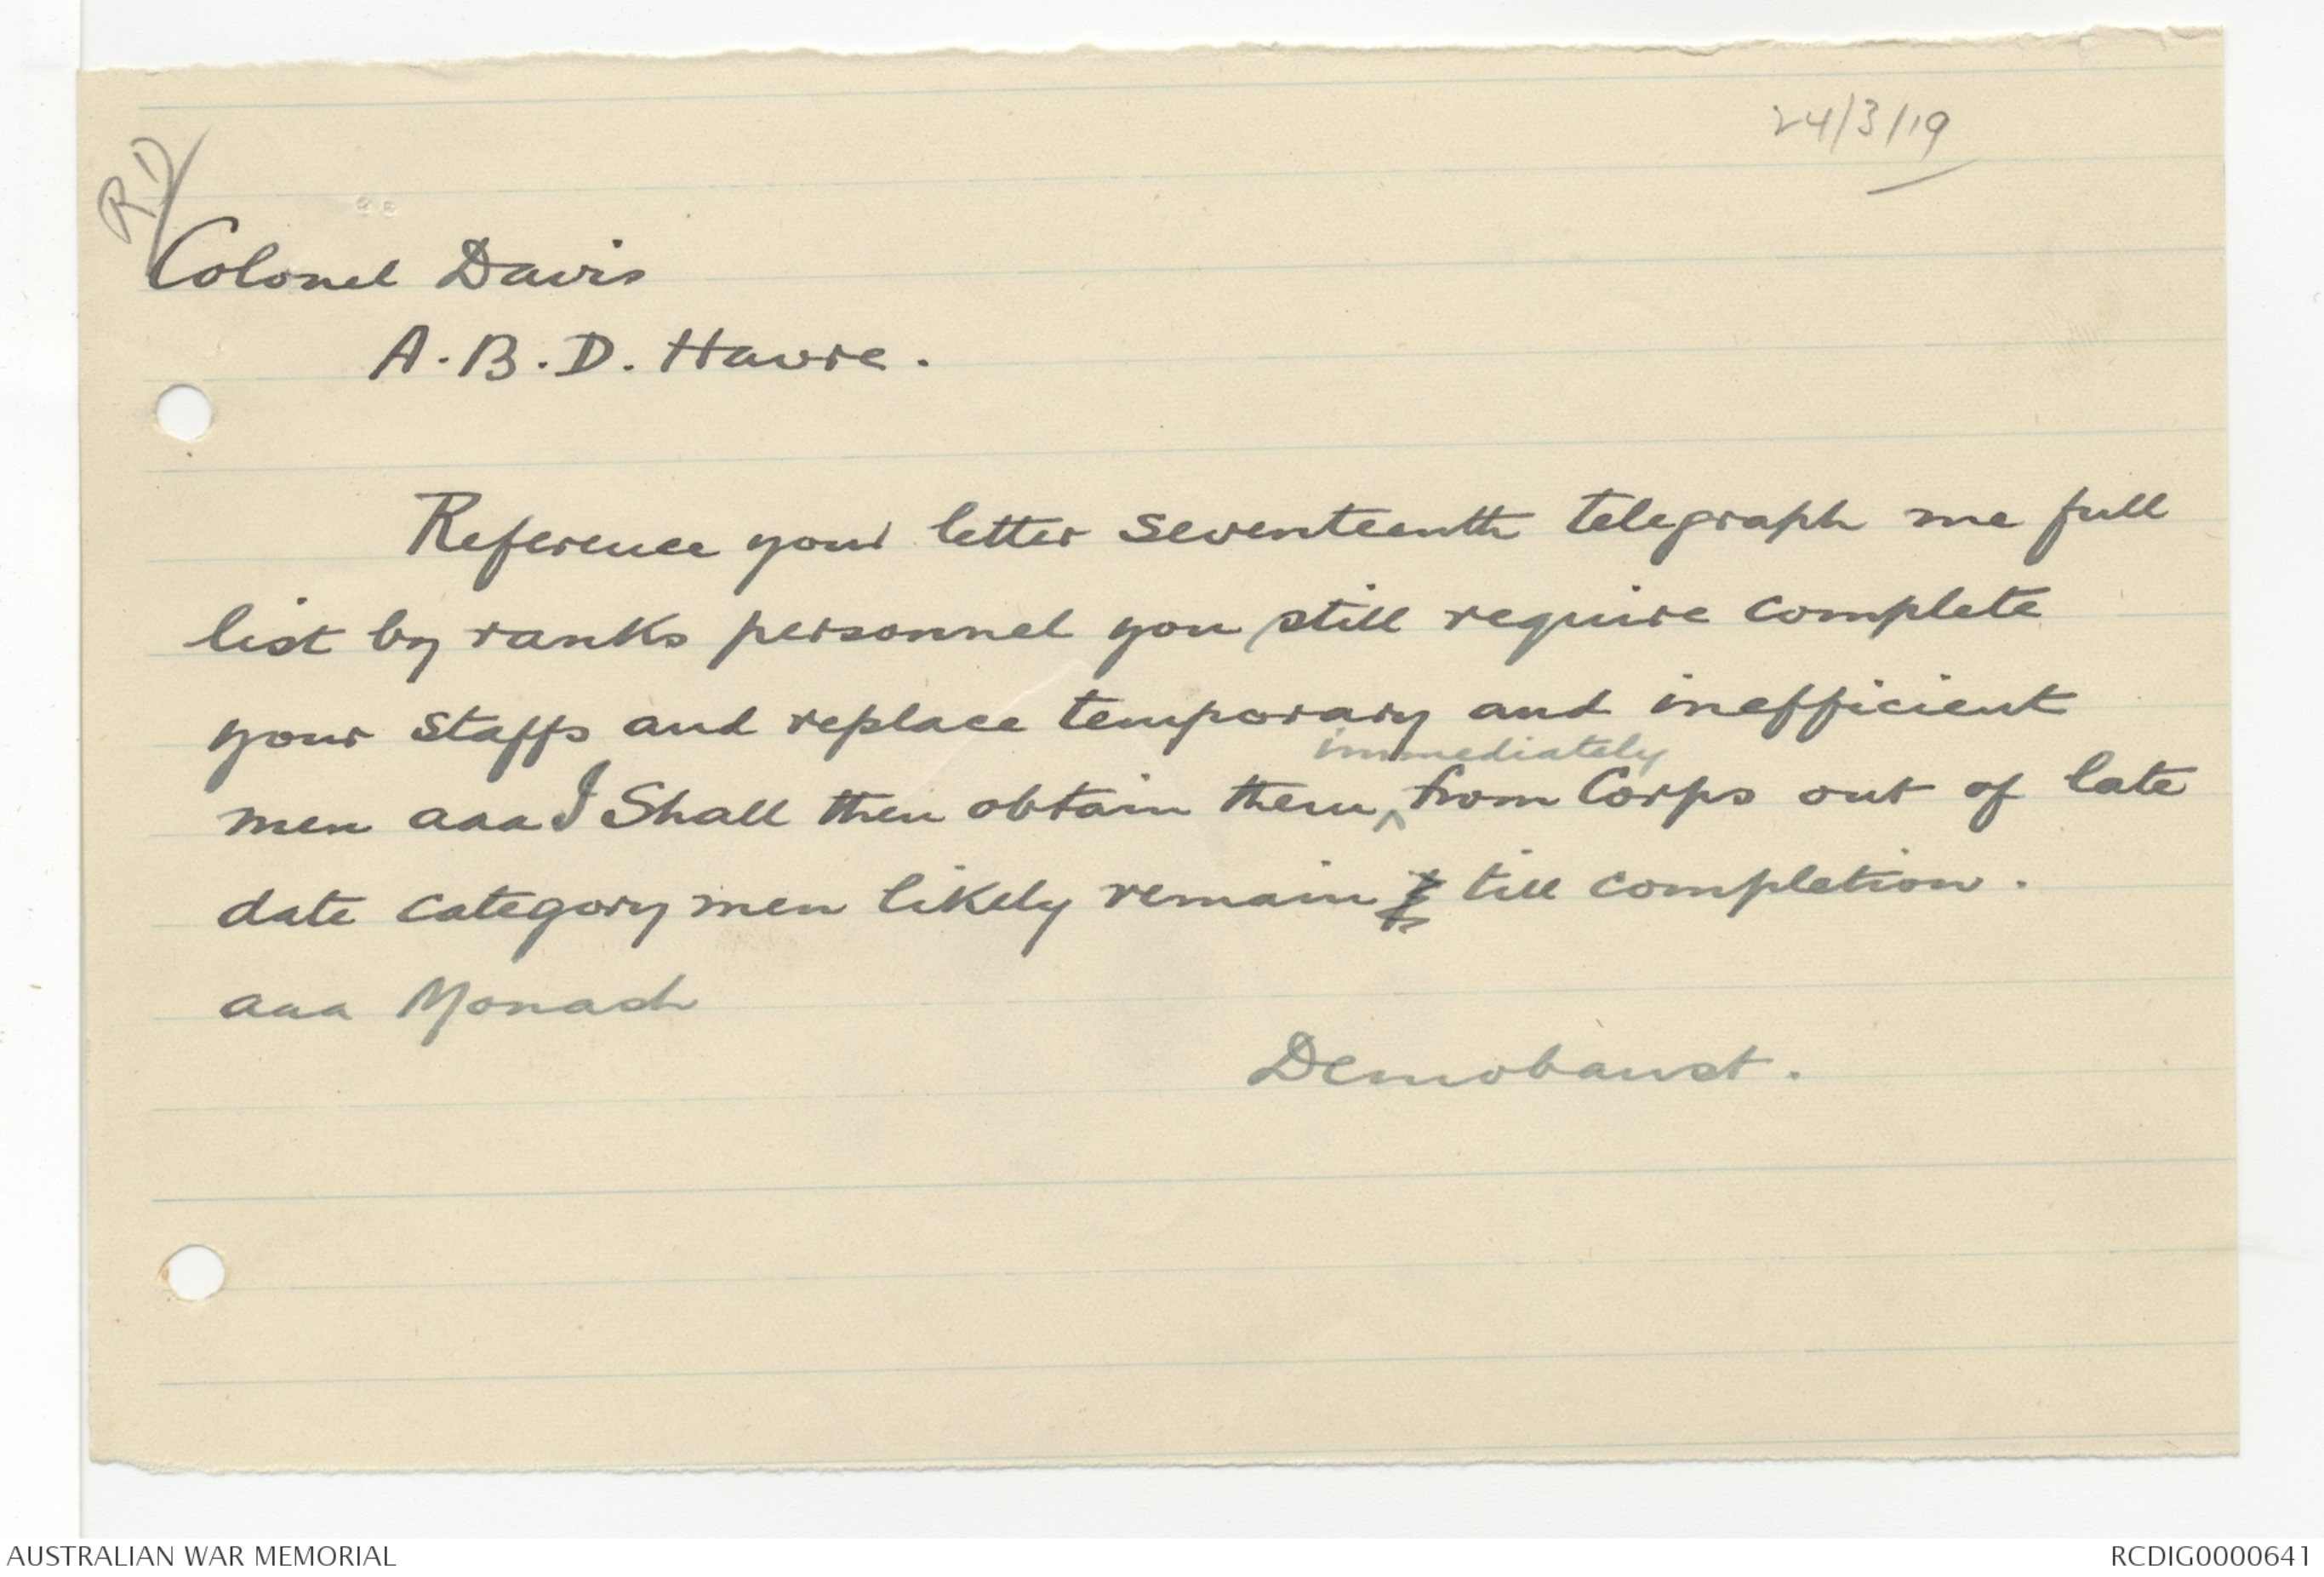 24/3/19
RD
Colonel Davis
A.B.D. Havre.
Reference your letter seventeenth telegraph me full
list by ranks personnel you still require complete
your staffs and replace temporary and inefficient
immediately
men aaa I Shall then obtain them ^ from Corps out of late
date category men likely remain till completion.
aaa Monash
Demobaust.
AUSTRALIAN WAR MEMORIAL
RCDIG0000641